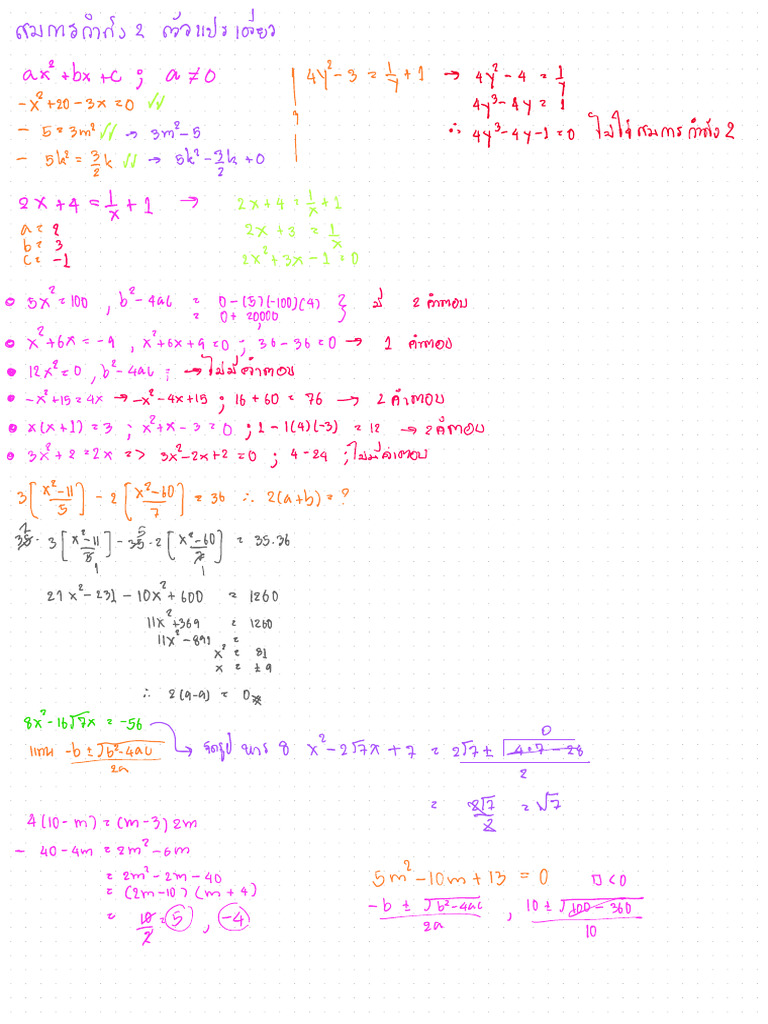 สมการกำลัง 2 ตัวแปรเดียว
ax² + bx + c ; a ≠ 0
-x² + 20 - 3x = 0 √√
- 5 = 3m² √√ → 3m² - 5
- 5k² = 3/2 k √√ → 5k² - 3/2 k + 0
4y² - 3 = 1/y + 1 → 4y² - 4 = 1/y
4y³ - 4y = 1
∴ 4y³ - 4y - 1 = 0 ไม่ใช่สมการกำลัง 2
2x + 4 = 1/x + 1 → 2x + 4 = 1/x + 1
a = 2
b = 3
c = -1
2x + 3 = 1/x
2x² + 3x - 1 = 0
• 5x² = 100 , b² - 4ac = 0 - (5)(-100)(4) } มี 2 คำตอบ
= 0 + 20000
• x² + 6x = -9 , x² + 6x + 9 = 0 ; 36 - 36 = 0 → 1 คำตอบ
• 12x² = 0 , b² - 4ac ; → ไม่มีคำตอบ
• -x² + 15 = 4x → -x² - 4x + 15 ; 16 + 60 = 76 → 2 คำตอบ
• x(x + 1) = 3 ; x² + x - 3 = 0 ; 1 - 1(4)(-3) = 12 → 2 คำตอบ
• 3x² + 2 = 2x => 3x² - 2x + 2 = 0 ; 4 - 24 ; ไม่มีคำตอบ
3[(x² - 11)/5] - 2[(x² - 60)/7] = 36 ∴ 2(a + b) = ?
35 · 3[(x² - 11)/5] - 35 · 2[(x² - 60)/7] = 35·36
21x² - 231 - 10x² + 600 = 1260
11x² + 369 = 1260
11x² - 891 =
x² = 81
x = ±9
∴ 2(9-9) = 0
8x² - 16√7x = -56
แทน (-b ± √(b² - 4ac))/2a
จัดรูป หาร 8 x² - 2√7x + 7 = (2√7 ± √(4·7 - 28))/2
= 2√7/2 = √7
4(10 - m) = (m - 3) 2m
- 40 - 4m = 2m² - 6m
= 2m² - 2m - 40
= (2m - 10) (m + 4)
= 10/2 = 5 , -4
5m² - 10m + 13 = 0 □ < 0
(-b ± √(b² - 4ac))/2a , (10 ± √(100 - 360))/10